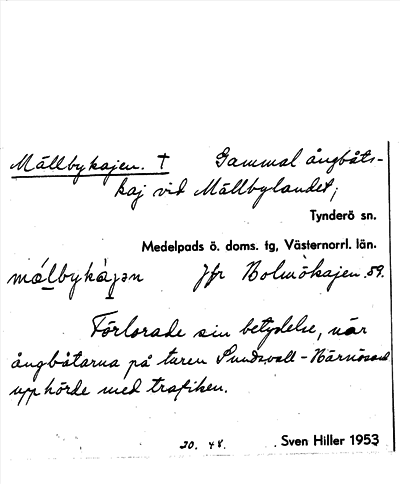 Mällbykajen. † Gammal ångbåts-
kaj vid Mällbylandet;
Tynderö sn.
Medelpads ö. doms. tg, Västernorrl. län.
Jfr Bolmökajen. 59.
Förlorade sin betydelse, när
ångbåtarna på turen Sundsvall - Härnösand
upphörde med trafiken.
20. 48. Sven Hiller 1953